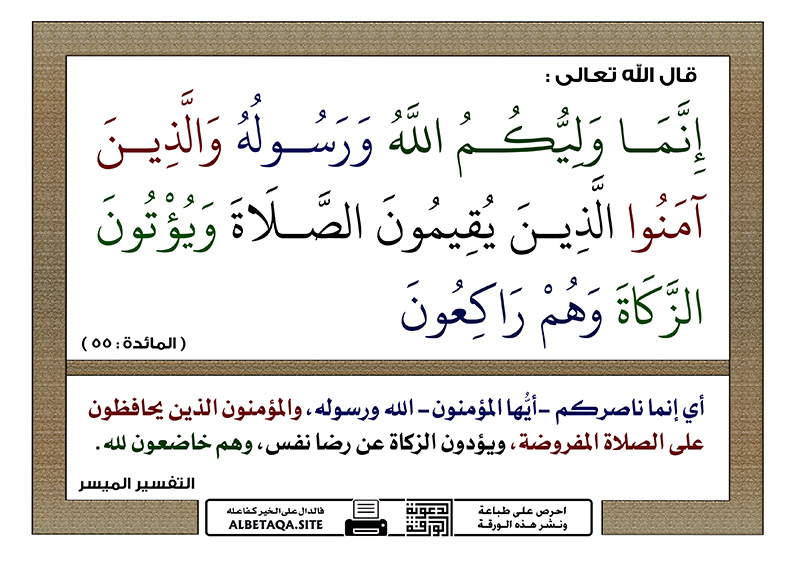 قال الله تعالى :
إِنَّمَا وَلِيُّكُمُ اللَّهُ وَرَسُولُهُ وَالَّذِينَ
آمَنُوا الَّذِينَ يُقِيمُونَ الصَّلَاةَ وَيُؤْتُونَ
الزَّكَاةَ وَهُمْ رَاكِعُونَ
( المائدة : ٥٥ )
أي إنما ناصركم -أيُّها المؤمنون- الله ورسوله، والمؤمنون الذين يحافظون
على الصلاة المفروضة، ويؤدون الزكاة عن رضا نفس، وهم خاضعون لله.
التفسير الميسر
احرص على طباعة
ونشر هذه الورقة
الدعوية
الورقة
فالدال على الخير كفاعله
ALBETAQA.SITE